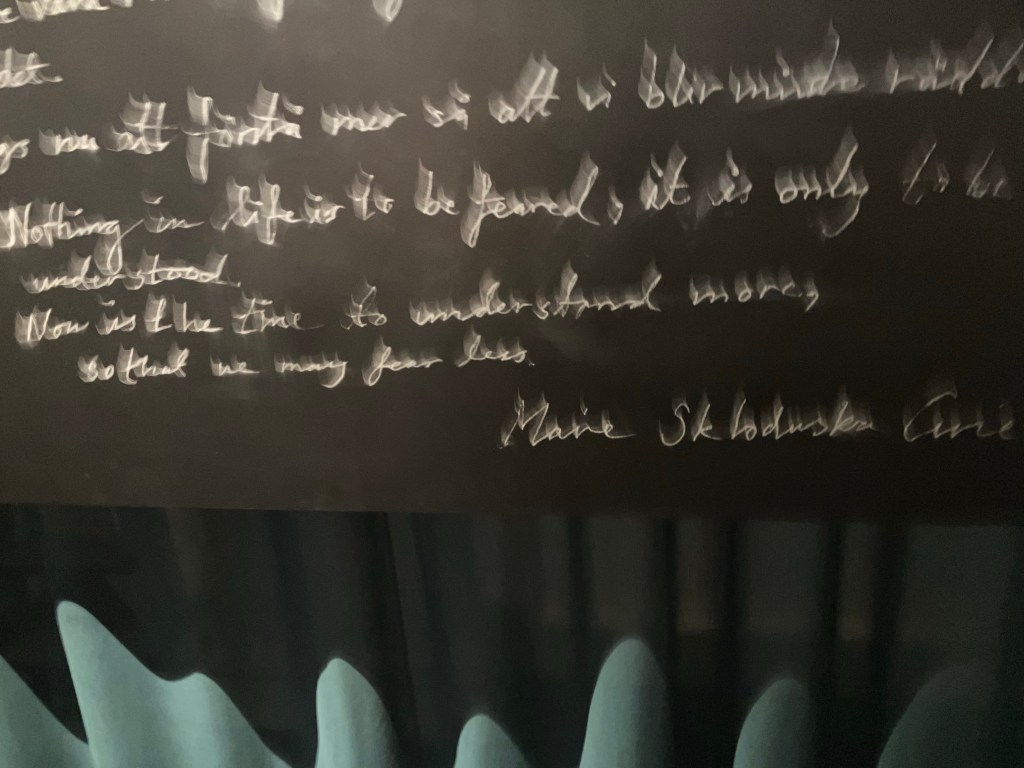 det.
att förstå mer så att vi blir mindre rädda
Nothing in life is to be feared, it is only to be
understood.
Now is the time to understand more,
so that we may fear less.
Marie Sklodowska Curie